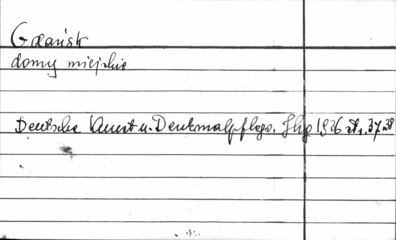 Gdańsk
domy miejskie
Deutsche Kunst u. Denkmalpflege. Jhg 1936 str. 37-38